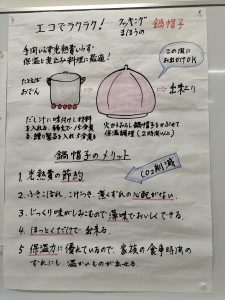 エコでラクラク！ クッキング まほうの 鍋帽子
手間いらず光熱費いらず
保温と煮込み料理に最適！
この間に
お出かけOK
たとえば
おでん
出来上り
だし汁に味付けした材料
を入れる。
火からおろし鍋帽子をかぶせて
保温調理（2時間以上）
鍋帽子のメリット
1. 光熱費の節約
CO2削減
2. ふきこぼれ、こげつき、煮くずれの心配がない。
3. じっくり味がしみこむので薄味でおいしくできる。
4. ほっとくだけで出来る。
5. 保温力に優れているので、家族の食事時間の
ずれにも、温かいものが出せる。